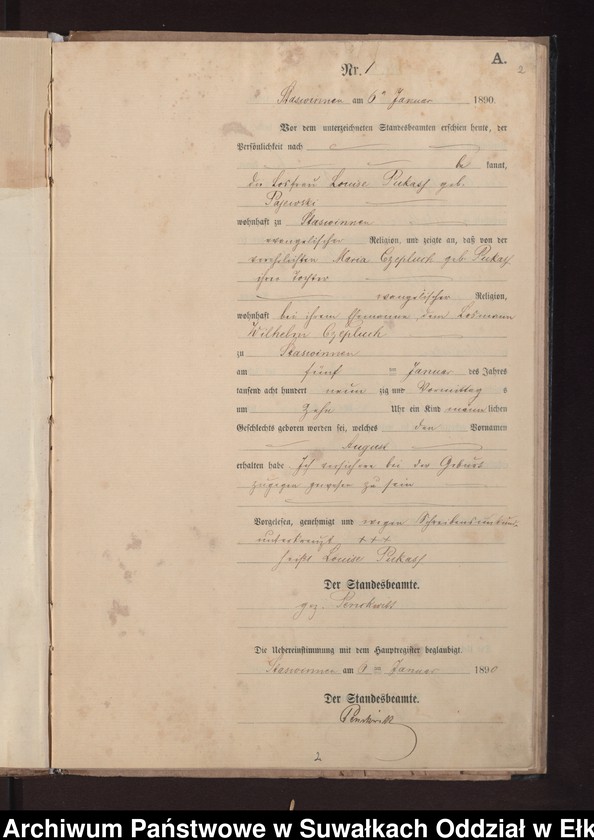 A.
2
Nr. 1
Staswinnen am 6ten Januar 1890.
Vor dem unterzeichneten Standesbeamten erschien heute, der
Persönlichkeit nach
be kannt,
die Losfrau Louise Piekatz geb.
Pajewski
wohnhaft zu Staswinnen
evangelischer Religion, und zeigte an, daß von der
verehelichten Maria Czepluch geb. Piekatz
ihrer Tochter
evangelischer Religion,
wohnhaft bei ihrem Ehemanne dem Losmann
Wilhelm Czepluch
zu Staswinnen
am fünf ten Januar des Jahres
tausend acht hundert neun zig und Vormittag s
um Zehn Uhr ein Kind männlichen
Geschlechts geboren worden sei, welches den Vornamen
August
erhalten habe Ich versichere bei der Geburt
zugegen gewesen zu sein
Vorgelesen, genehmigt und wegen Schreibensunkun.
unterkreuzt +++
heißt Louise Piekatz
Der Standesbeamte.
gez.
Die Uebereinstimmung mit dem Hauptregister beglaubigt.
Staswinnen am 6 ten Januar 1890
Der Standesbeamte.
2
Archiwum Państwowe w Suwałkach Oddział w Ełk